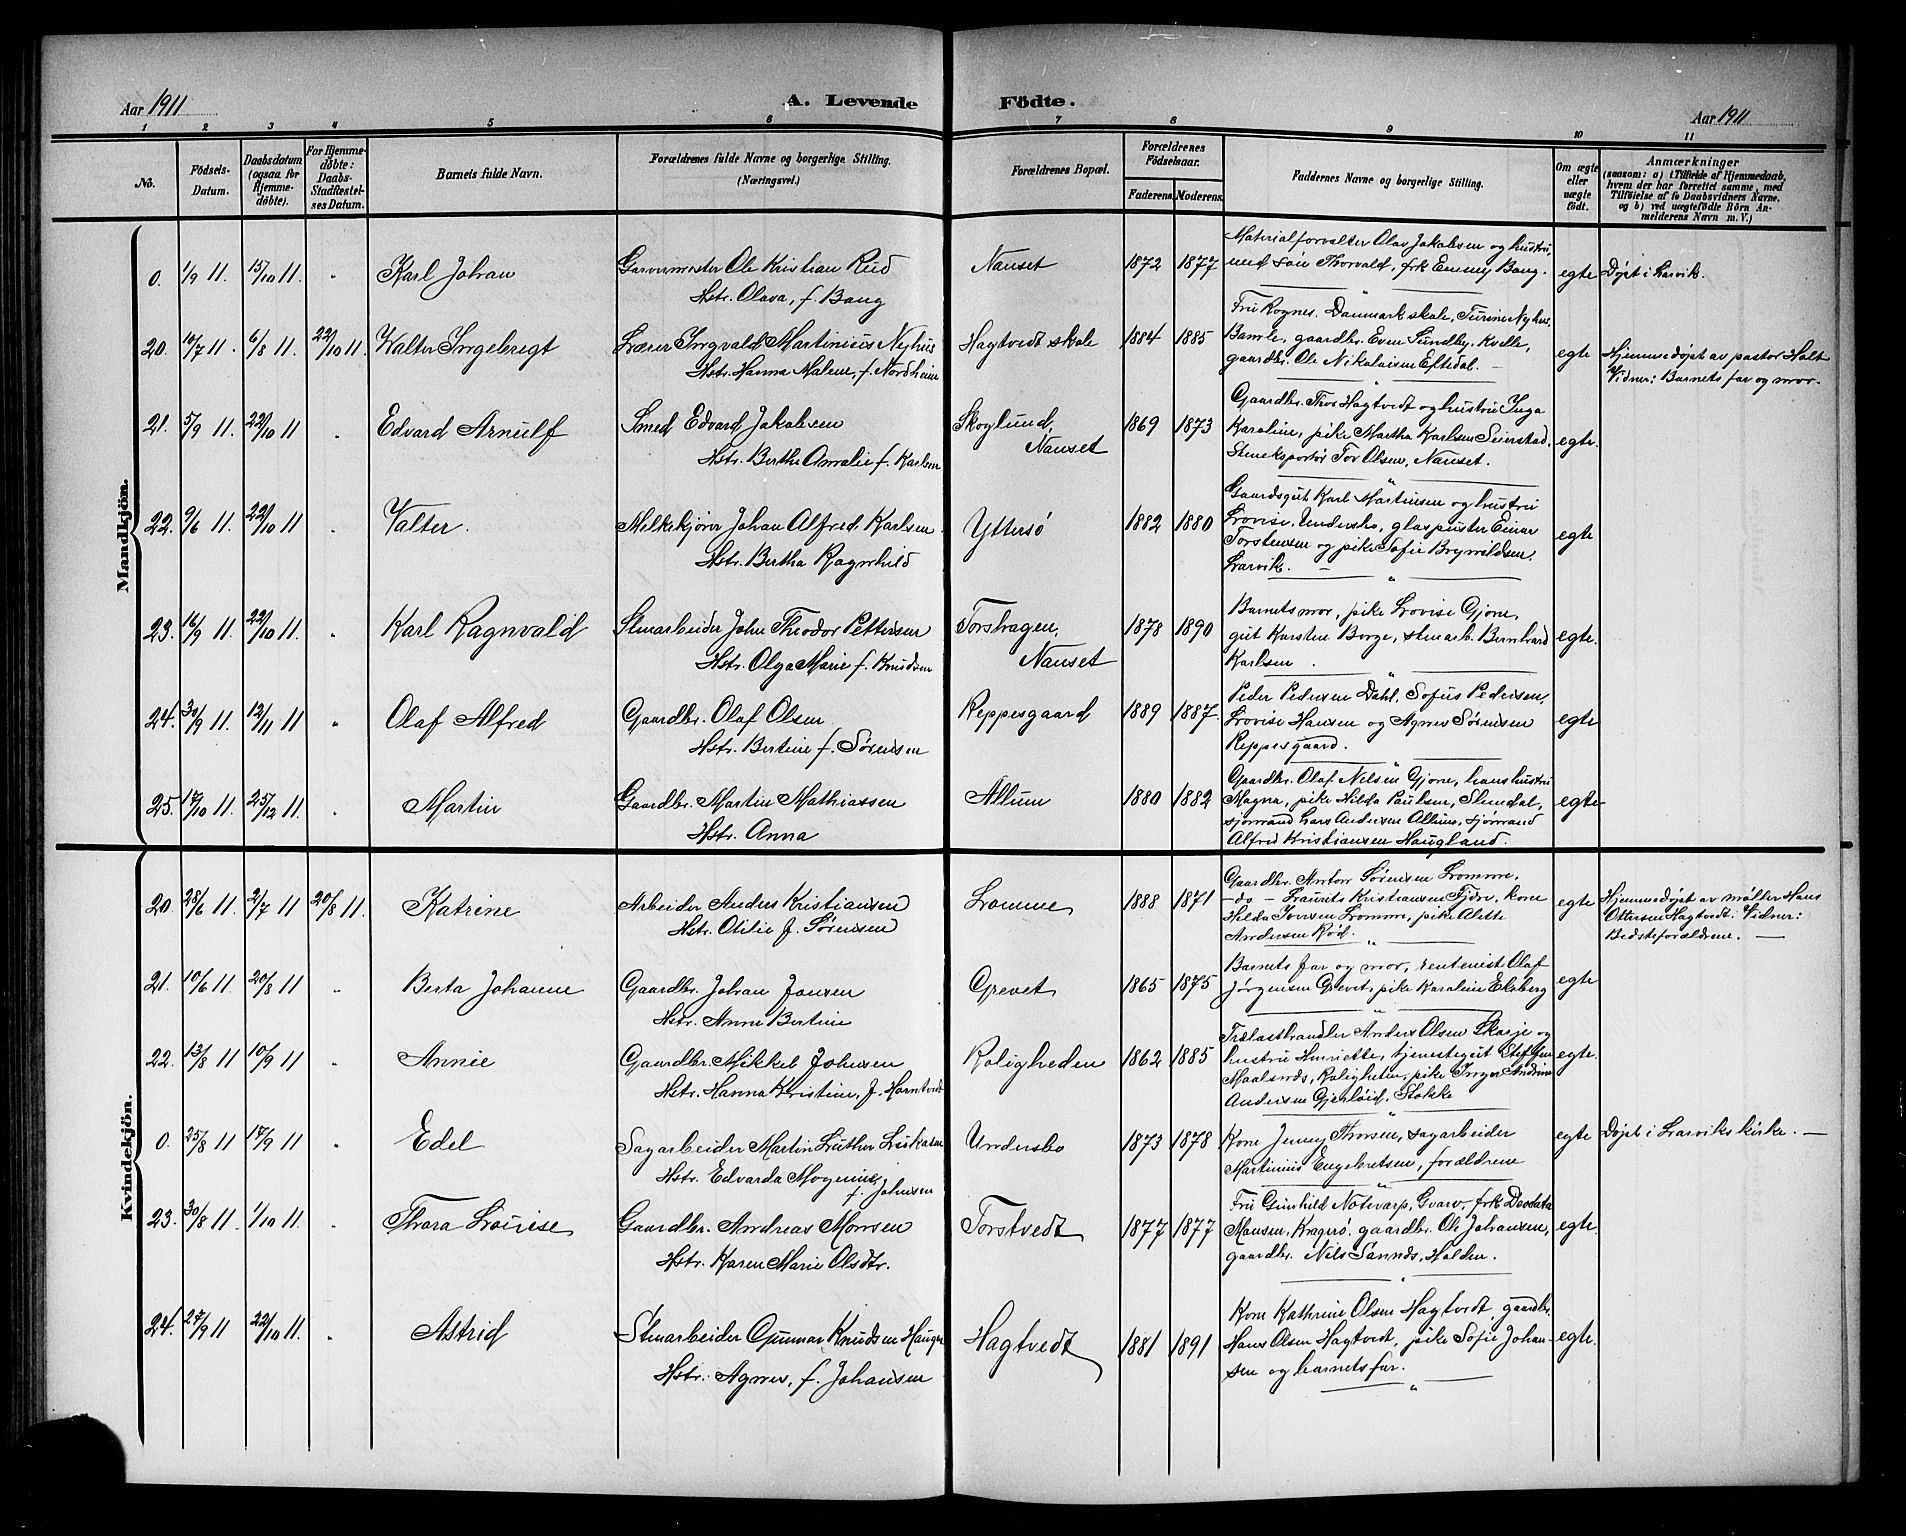 Aar 1911
A. Levende
Födte.
Aar 1911
1 2 3 4 5 6 7 8 9 10 11
No.
Födsels-
Datum.
Daabsdatum
(ogsaa for
Hjemme-
döbte).
For Hjemme-
döbte:
Daabs-
Stadfæstel-
ses Datum.
Barnets fulde Navn.
Forældrenes fulde Navne og borgerlige Stilling.
(Næringsvei.)
Forældrenes Bopæl.
Forældrenes
Födselsaar.
Faderens. Moderens.
Faddernes Navne og borgerlige Stilling.
Om ægte
eller
uægte
födt.
Anmærkninger
(saasom: a) i Tilfælde af Hjemmedaab,
hvem der har forrettet samme, med
Tilföielse af to Daabsvidners Navne,
og b) ved uægtefödte Börn An-
melderens Navn m. V.)
Mandkjön.
0. 1/9 11. 15/10 11. " Karl Johan
Garvermester Ole Kristian Rud
Hstr. Olava, f. Bang
Nanset 1872 1877
Materialforvalter Olav Jakobsen og hustru,
med søn Thorvald, frk Emmy Bang.
egte Døpt i Larvik.
20. 10/7 11. 6/8 11. 22/10 11. Walter Ingebregt
Lærer Ingvald Martinius Nyhus
Hstr. Hanna Malene, f. Nordheim
Hagtvedt skole 1884 1885
Fru Rognes, Danmark skole, Turine Nyhus,
Bamle, gaardbr. Even Sundby, Kvelle,
gaardbr. Ole Nikolaisen Eftedal.
egte
Hjemmedøpt av pastor Holt
Vidner: Barnets far og mor.
21. 5/9 11. 22/10 11 " Edvard Arnulf
Smed Edvard Jakobsen
Hstr. Berthe Amalie f. Karlsen
Skoglund,
Nanset
1869 1873
Gaardbr. Thor Hagtvedt og hustru Inga
Karoline, pike Martha Karlsen Seierstad,
Stneksportør Tor Olsen, Nanset.
egte.
22. 9/6 11. 22/10 11 " Valter.
Melkekjører Johan Alfred Karlsen
Hstr. Bertha Ragnhild
Yttersø 1882 1880
Gaardsgut Karl Martinsen og hustru
Lovise, Undersbo, glaspuster Einar
Torstensen og pike Sofie Brynildsen,
Larvik.
egte
23. 16/9 11. 22/10 11. " Karl Ragnvald
Stnarbeider John Theodor Pettersen
Hstr. Olga Marie f. Knudsen
Torshagen,
Nanset
1878 1890
Barnets mor, pike Lovise Gjone,
gut Karsten Borge, stnarb. Bernhard
Karlsen.
egte.
24. 30/9 11. 12/11 11 " Olaf Alfred
Gaardbr. Olaf Olsen
Hstr. Bertine f. Sørensen
Reppesgaard 1889 1887
Peder Pedersen Dahl, Sofus Pedersen,
Lovise Hansen og Agnes Sørensen
Reppesgaard.
egte
25. 17/10 11. 25/12 11. " Martin
Gaardbr. Martin Mathiassen
Hstr. Anna
Allum 1880 1882
Gaardbr. Olaf Nilsen Gjone, hans hustru
Magna, pike Hilda Paulsen, Stendal,
sjømand Lars Andersen Allum, sjømand
Alfred Kristiansen Haugland.
egte
Kvindekjön.
20. 28/6 11 2/7 11 20/8 11. Katrine
Arbeider Anders Kristiansen
Hstr. Otilie f. Sørensen
Lomme 1888 1871
Gaardbr. Anton Sørensen Lomme,
-do- Lauritz Kristiansen Fjære, kone
Hilda Iversen Lomme, pike Alette
Andersen Rød.
egte
Hjemmedøpt av møller Hans
Ottersen Hagtvedt. Vidner:
Bedsteforældrene.
21. 10/6 11. 20/8 11 " Berta Johanne
Gaardbr. Johan Jansen
Hstr. Anne Bertine
Grevet 1865 1875
Barnets far og mor, rentenist Olaf
Jørgensen Grevet, pike Karoline Ekeberg
egte
22. 13/8 11 10/9 11 " Annie
Gaardbr. Mikkel Johnsen
Hstr. Hanna Kristine, f. Horntvedt
Roligheden 1862 1885
Trælasthandler Anders Olsen Skarje og
hustru Henriette, tjenestegut Steffen
Maalsnds, Roligheten, pike Inger Andrine
Andersen Gjerløid, Stokke
egte.
0. 25/8 11 17/9 11 " Edel
Sagarbeider Martin Luther Lukasen
Hstr. Edvarda Mogenine
f. Johnsen
Undersbo 1873 1878
Kone Jenny Thorsen, sagarbeider
Martinius Engebretsen, forældrene
egte Døpt i Larviks kirke.
23. 30/8 11. 1/10 11. " Thora Louise
Gaardbr. Andreas Monsen
Hstr. Karen Marie Olsdtr.
Torstvedt 1877 1877
Fru Gunhild Notevarp, Gvarv, frk Deodata
Hansen, Kragerø, gaardbr. Ole Johansen,
gaardbr. Nils Sannds, Holden.
egte.
24. 27/9 11 22/10 11. " Astrid
Stnarbeider Gunnar Knudsen Haugen
Hstr. Agnes, f. Johansen
Hagtvedt 1881 1891
Kone Kathrine Olsen Hagtvedt, gaardbr.
Hans Olsen Hagtvedt, pike Sofie Johan-
sen og barnets far.
egte.